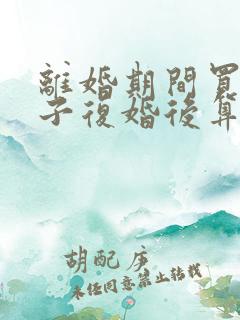 離婚期間買
子復婚後算
胡配序
未经同意禁止转载